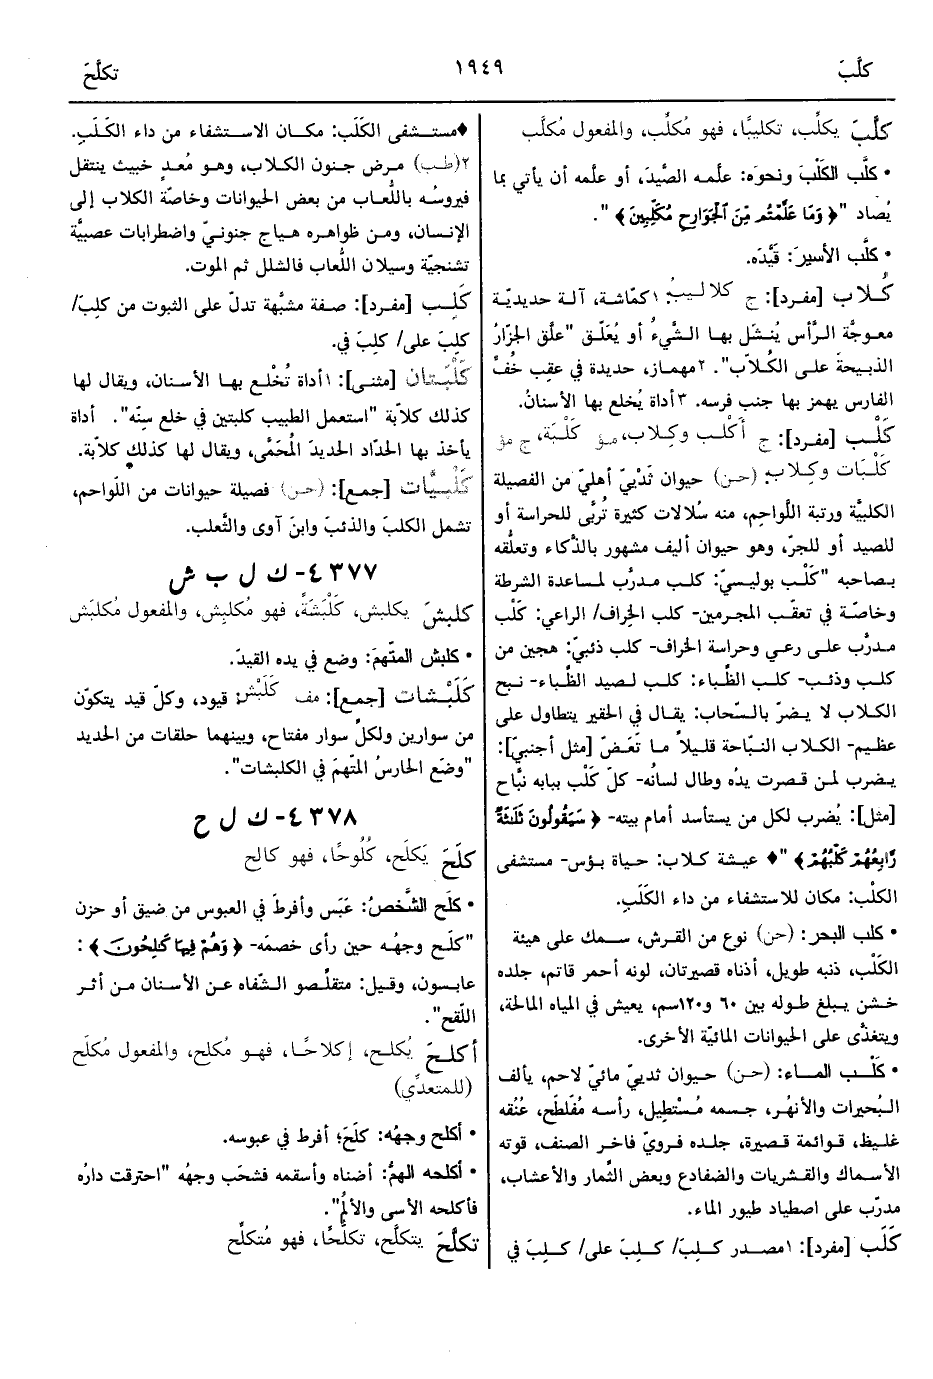 كلَّبَ
١٩٤٩
تكلَّحَ
كلَّبَ يكلِّب، تكليبًا، فهو مُكلِّب، والمفعول مُكلَّب
• كلَّب الكَلْبَ ونحوَه: علَّمه الصَّيدَ، أو علَّمه أن يأتي بما
يُصاد "﴿ وَمَا عَلَّمْتُم مِّنَ ٱلْجَوَارِحِ مُكَلِّبِينَ ﴾".
• كلَّب الأسيرَ: قَيَّدَه.
كُلاَّب [مفرد]: ج كلاليبُ: ١كمّاشة، آلة حديديّة
معوجَّة الرَّأس يُنشَل بها الشَّيءُ أو يُعَلَّق "علَّق الجزّارُ
الذبيحةَ على الكُلاّب". ٢مهماز، حديدة في عقِب خُفِّ
الفارس يهمز بها جنب فرسه. ٣أداة يُخلع بها الأسنانُ.
كَلْب [مفرد]: ج أَكْلُب وكِلاب، مؤ كَلْبَة، ج مؤ
كَلْبَات وكِلاب: (حن) حيوان ثَدْييّ أهليّ من الفصيلة
الكلبيَّة ورتبة اللَّواحِم، منه سُلالات كثيرة تُربَّى للحراسة أو
للصيد أو للجرّ، وهو حيوان أليف مشهور بالذَّكاء وتعلُّقه
بصاحبه "كَلْب بوليسيّ: كلب مدرَّب لمساعدة الشرطة
وخاصّة في تعقب المجرمين- كلب الخِراف/ الراعي: كَلْب
مدرَّب على رعي وحراسة الخراف- كلب ذئبيّ: هجين من
كلب وذئب- كلب الظِّباء: كلب لصيد الظِّباء- نبح
الكلاب لا يضرّ بالسَّحاب: يقال في الحقير يتطاول على
عظيم- الكلاب النبّاحة قليلاً ما تَعَضّ [مثل أجنبيّ]:
يضرب لمن قصرت يدُه وطال لسانُه- كلّ كَلْب ببابه نبَّاح
[مثل]: يُضرب لكل من يستأسد أمام بيته- ﴿ سَيَقُولُونَ ثَلَٰثَةٌ
رَّابِعُهُمْ كَلْبُهُمْ ﴾" ♦ عيشة كلاب: حياة بؤس- مستشفى
الكلْب: مكان للاستشفاء من داء الكَلَبِ.
• كلب البحر: (حن) نوع من القرش، سمك على هيئة
الكَلْب، ذنبه طويل، أذناه قصيرتان، لونه أحمر قاتم، جلده
خشن يبلغ طوله بين ٦٠ و١٢٠سم، يعيش في المياه المالحة،
ويتغذَّى على الحيوانات المائيّة الأخرى.
• كَلْب الماء: (حن) حيوان ثدييّ مائيّ لاحم، يألف
البُحيرات والأنهُر، جسمه مُسْتطِيل، رأسه مُفَلطَح، عُنُقه
غليظ، قوائمة قصيرة، جلده فرويّ فاخر الصنف، قوته
الأسماك والقشريات والضفادع وبعض الثَّمار والأعشاب،
مدرّب على اصطياد طيور الماء.
كَلَب [مفرد]: ١مصدر كلِبَ/ كلِبَ على/ كلِبَ في
♦مستشفى الكَلَب: مكان الاستشفاء من داء الكَلَبِ.
٢(طب) مرض جنون الكلاب، وهو مُعدٍ خبيث ينتقل
فيروسُه باللُّعاب من بعض الحيوانات وخاصّة الكلاب إلى
الإنسان، ومن ظواهره هياج جنونيّ واضطرابات عصبيَّة
تشنجيّة وسيلان اللُّعاب فالشلل ثم الموت.
كَلِب [مفرد]: صفة مشبَّهة تدلّ على الثبوت من كلِبَ/
كلِبَ على/ كلِبَ في.
كَلْبَتان [مثنى]: ١أداة تُخْلع بها الأسنان، ويقال لها
كذلك كلاّبة "استعمل الطبيب كلبتين في خلع سِنّه". أداة
يأخذ بها الحدّاد الحديدَ المُحَمَّى، ويقال لها كذلك كلاّبة.
كَلْبيّات [جمع]: (حن) فصيلة حيوانات من اللّواحم،
تشمل الكلبَ والذئبَ وابنَ آوى والثَّعلب.
٤٣٧٧- ك ل ب ش
كلبشَ يكلبش، كَلْبَشَةً، فهو مُكلبِش، والمفعول مُكلبَش
• كلبش المتَّهمَ: وضع في يده القيدَ.
كَلَبْشات [جمع]: مف كَلَبْش: قيود، وكلّ قيد يتكوّن
من سوارين ولكلِّ سوار مفتاح، وبينهما حلقات من الحديد
"وضَع الحارسُ المتّهمَ في الكلبشات".
٤٣٧٨- ك ل ح
كلَحَ يَكلَح، كُلُوحًا، فهو كالِح
• كلَح الشَّخصُ: عَبَس وأفرط في العبوس من ضيق أو حزن
"كلَح وجهُه حين رأى خصمَه- ﴿ وَهُمْ فِيهَا كَٰلِحُونَ ﴾:
عابسون، وقيل: متقلِّصو الشّفاه عن الأسنان من أثر
اللّفح".
أكلحَ يُكلح، إكلاحًا، فهو مُكلِح، والمفعول مُكلَح
(للمتعدِّي)
• أكلح وجهُه: كلَحَ؛ أفرط في عبوسه.
• أكلحه الهمُّ: أضناه وأسقمه فشحَب وجهُه "احترقت دارُه
فأكلحه الأسى والألَمُ".
تكلَّحَ يتكلَّح، تكلُّحًا، فهو مُتكلِّح